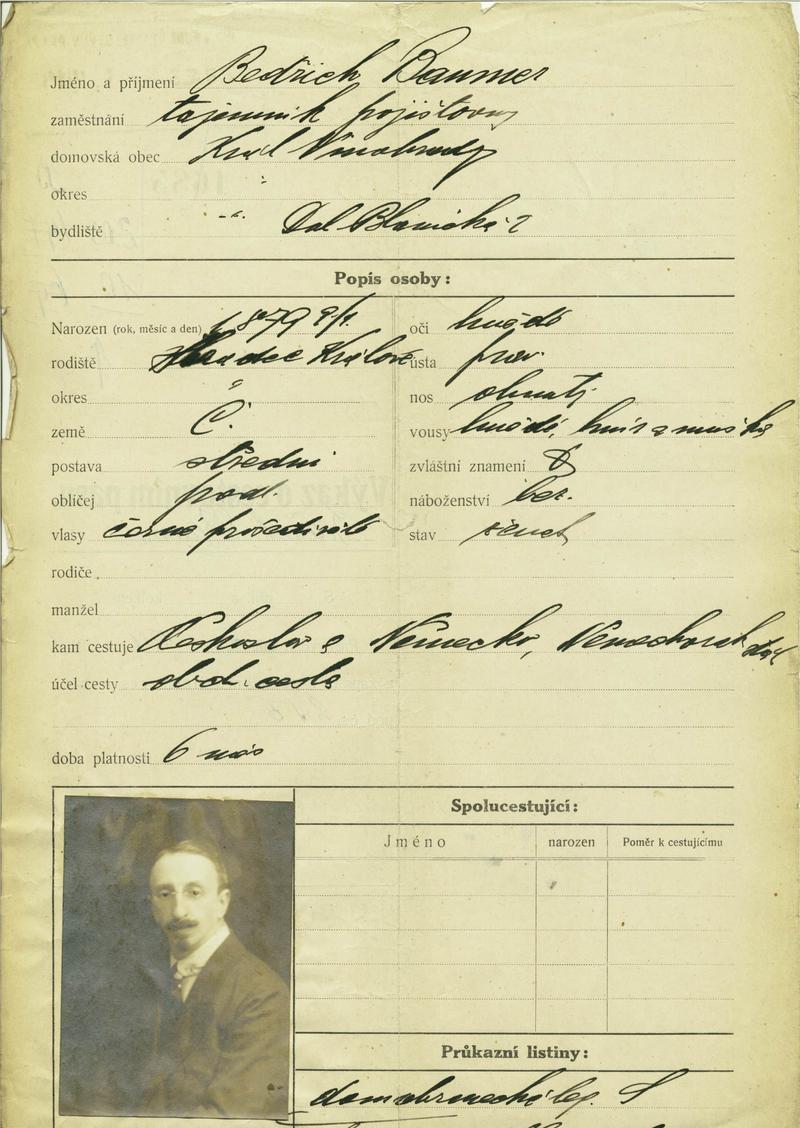 Jméno a příjmení Bedřich Baumer
zaměstnání tajemník pojišťovny
domovská obec Král Vinohrady
okres "
bydliště -"- Blanická 2
Popis osoby:
Narozen (rok, měsíc a den) 1879 9/1.
rodiště Hradec Králové
okres "
země Č.
postava střední
obličej podl.
vlasy černé prošedivělé
oči hnědé
ústa prav.
nos ohnutý
vousy hnědé, knír a muška
zvláštní znamení
náboženství bez.
stav ženat
rodiče
manžel
kam cestuje Českoslov a Německo, Německorak
účel cesty obch. cesta
doba platnosti 6 měs
Spolucestující:
Jméno narozen Poměr k cestujícímu
Průkazní listiny:
domobranecká leg.